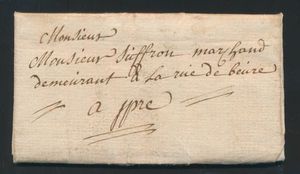 Monsieur
Monsieur Suffron marchand
demeurant a la rue de beure
a ypre